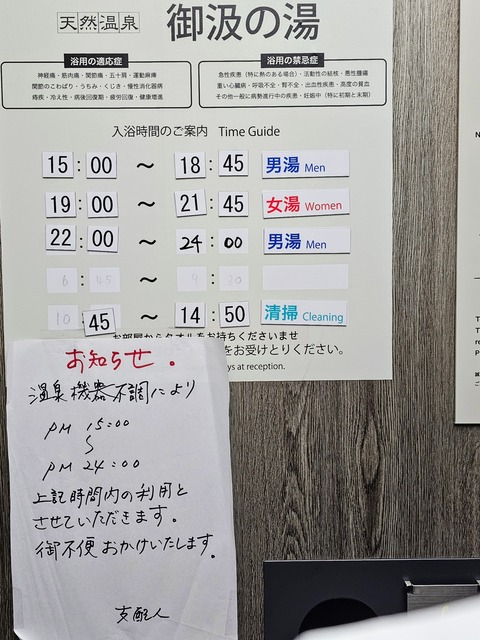 天然温泉 御汲の湯
浴用の適応症
神経痛・筋肉痛・関節痛・五十肩・運動麻痺
関節のこわばり・うちみ・くじき・慢性消化器病
痔疾・冷え性・病後回復期・疲労回復・健康増進
浴用の禁忌症
急性疾患（特に熱のある場合）・活動性の結核・悪性腫瘍
重い心臓病・呼吸不全・腎不全・出血性疾患・高度の貧血
その他一般に病勢進行中の疾患・妊娠中（特に初期と末期）
入浴時間のご案内 Time Guide
15:00 ～ 18:45 男湯 Men
19:00 ～ 21:45 女湯 Women
22:00 ～ 24:00 男湯 Men
6:45 ～ 9:30
10:45 ～ 14:50 清掃 Cleaning
お部屋からタオルをお持ちくださいませ
をお受けとりください。
ys at reception.
お知らせ。
温泉機器不調により
PM 15:00
～
PM 24:00
上記時間内の利用と
させていただきます。
御不便おかけいたします。
支配人